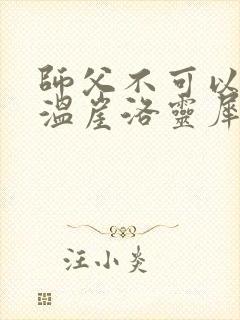 師父不可以
溫崖洛靈犀
汪小炎